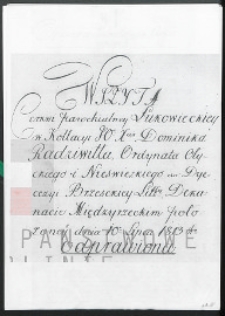 WIZYTA
Cerkwi parochialney Łukowieckiey
w Kollacyi JO. Xcia Dominika
Radziwiłła, Ordynata Oły
ckiego i Nieświeżkiego w Dye
cezyi Brzeskiey Litt: Deka
nacie Międzyrzeckim poło
żoney dnia 10 lipca 1813 r.
odprawiona.